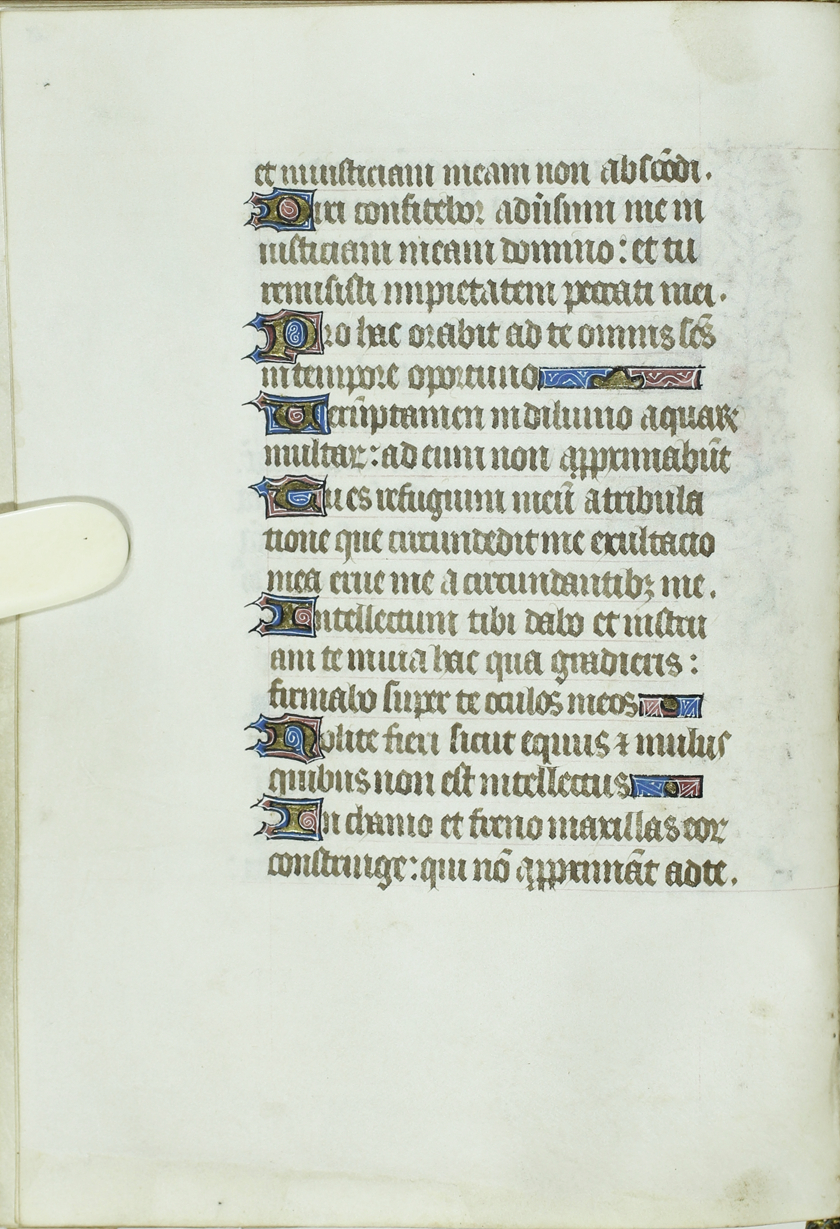 et iniusticiam meam non abscōdi.
Dixi confitebor adūsum me in
iusticiam meam domino: et tu
remisisti impietatem peccati mei.
Pro hac orabit ad te omnis sc̄s
in tempore oportuno
Uerūptamen in diluuio aquaꝝ
multaꝝ: ad eum non approximabūt
Tu es refugium meū a tribula
tione que circundedit me exultacio
mea erue me a circundantibꝫ me.
Intellectum tibi dabo et instru
am te in uia hac qua gradieris:
firmabo super te oculos meos
Nolite fieri sicut equus ⁊ mulus
quibus non est intellectus
In chamo et freno maxillas eoꝝ
constringe: qui nō approximāt ad te.